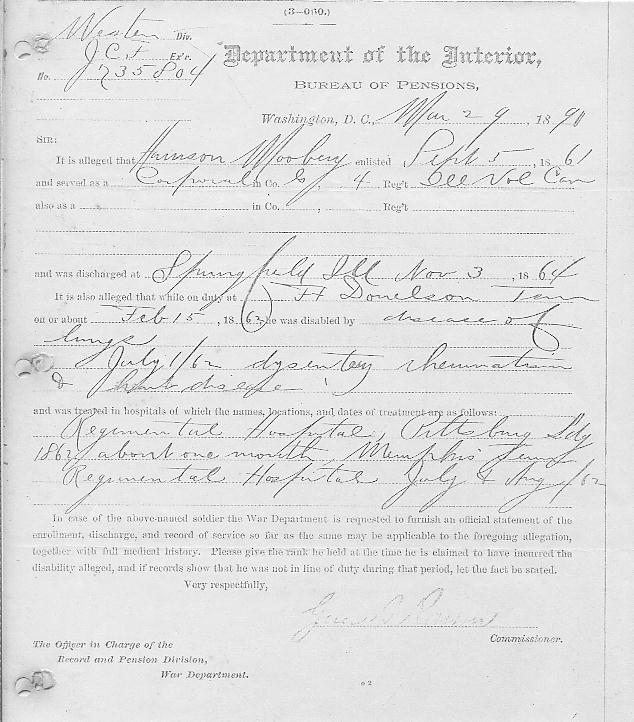 (3—060.)
Western Div.
J.C.F. Ex'r.
No. 735804
Department of the Interior,
BUREAU OF PENSIONS,
Washington, D. C., Mar 29, 1890
SIR:
It is alleged that Harrison Mooberry enlisted Sept 5, 1861
and served as a Corporal in Co. G, 4 Reg't Ill Vol Cav
also as a in Co. , Reg't
and was discharged at Springfield Ill Nov 3, 1864
It is also alleged that while on duty at Ft Donelson Tenn
on or about Feb 15, 1862, he was disabled by disease of
lungs
July 1/62 dysentery rheumatism
& heart disease
and was treated in hospitals of which the names, locations, and dates of treatment are as follows:
Regimental Hospital, Pittsburg Ldg
1862 about one month, Memphis Tenn
Regimental Hospital July & Aug /62
In case of the above-named soldier the War Department is requested to furnish an official statement of the
enrollment, discharge, and record of service so far as the same may be applicable to the foregoing allegation,
together with full medical history. Please give the rank he held at the time he is claimed to have incurred the
disability alleged, and if records show that he was not in line of duty during that period, let the fact be stated.
Very respectfully,
Commissioner.
The Officer in Charge of the
Record and Pension Division,
War Department.